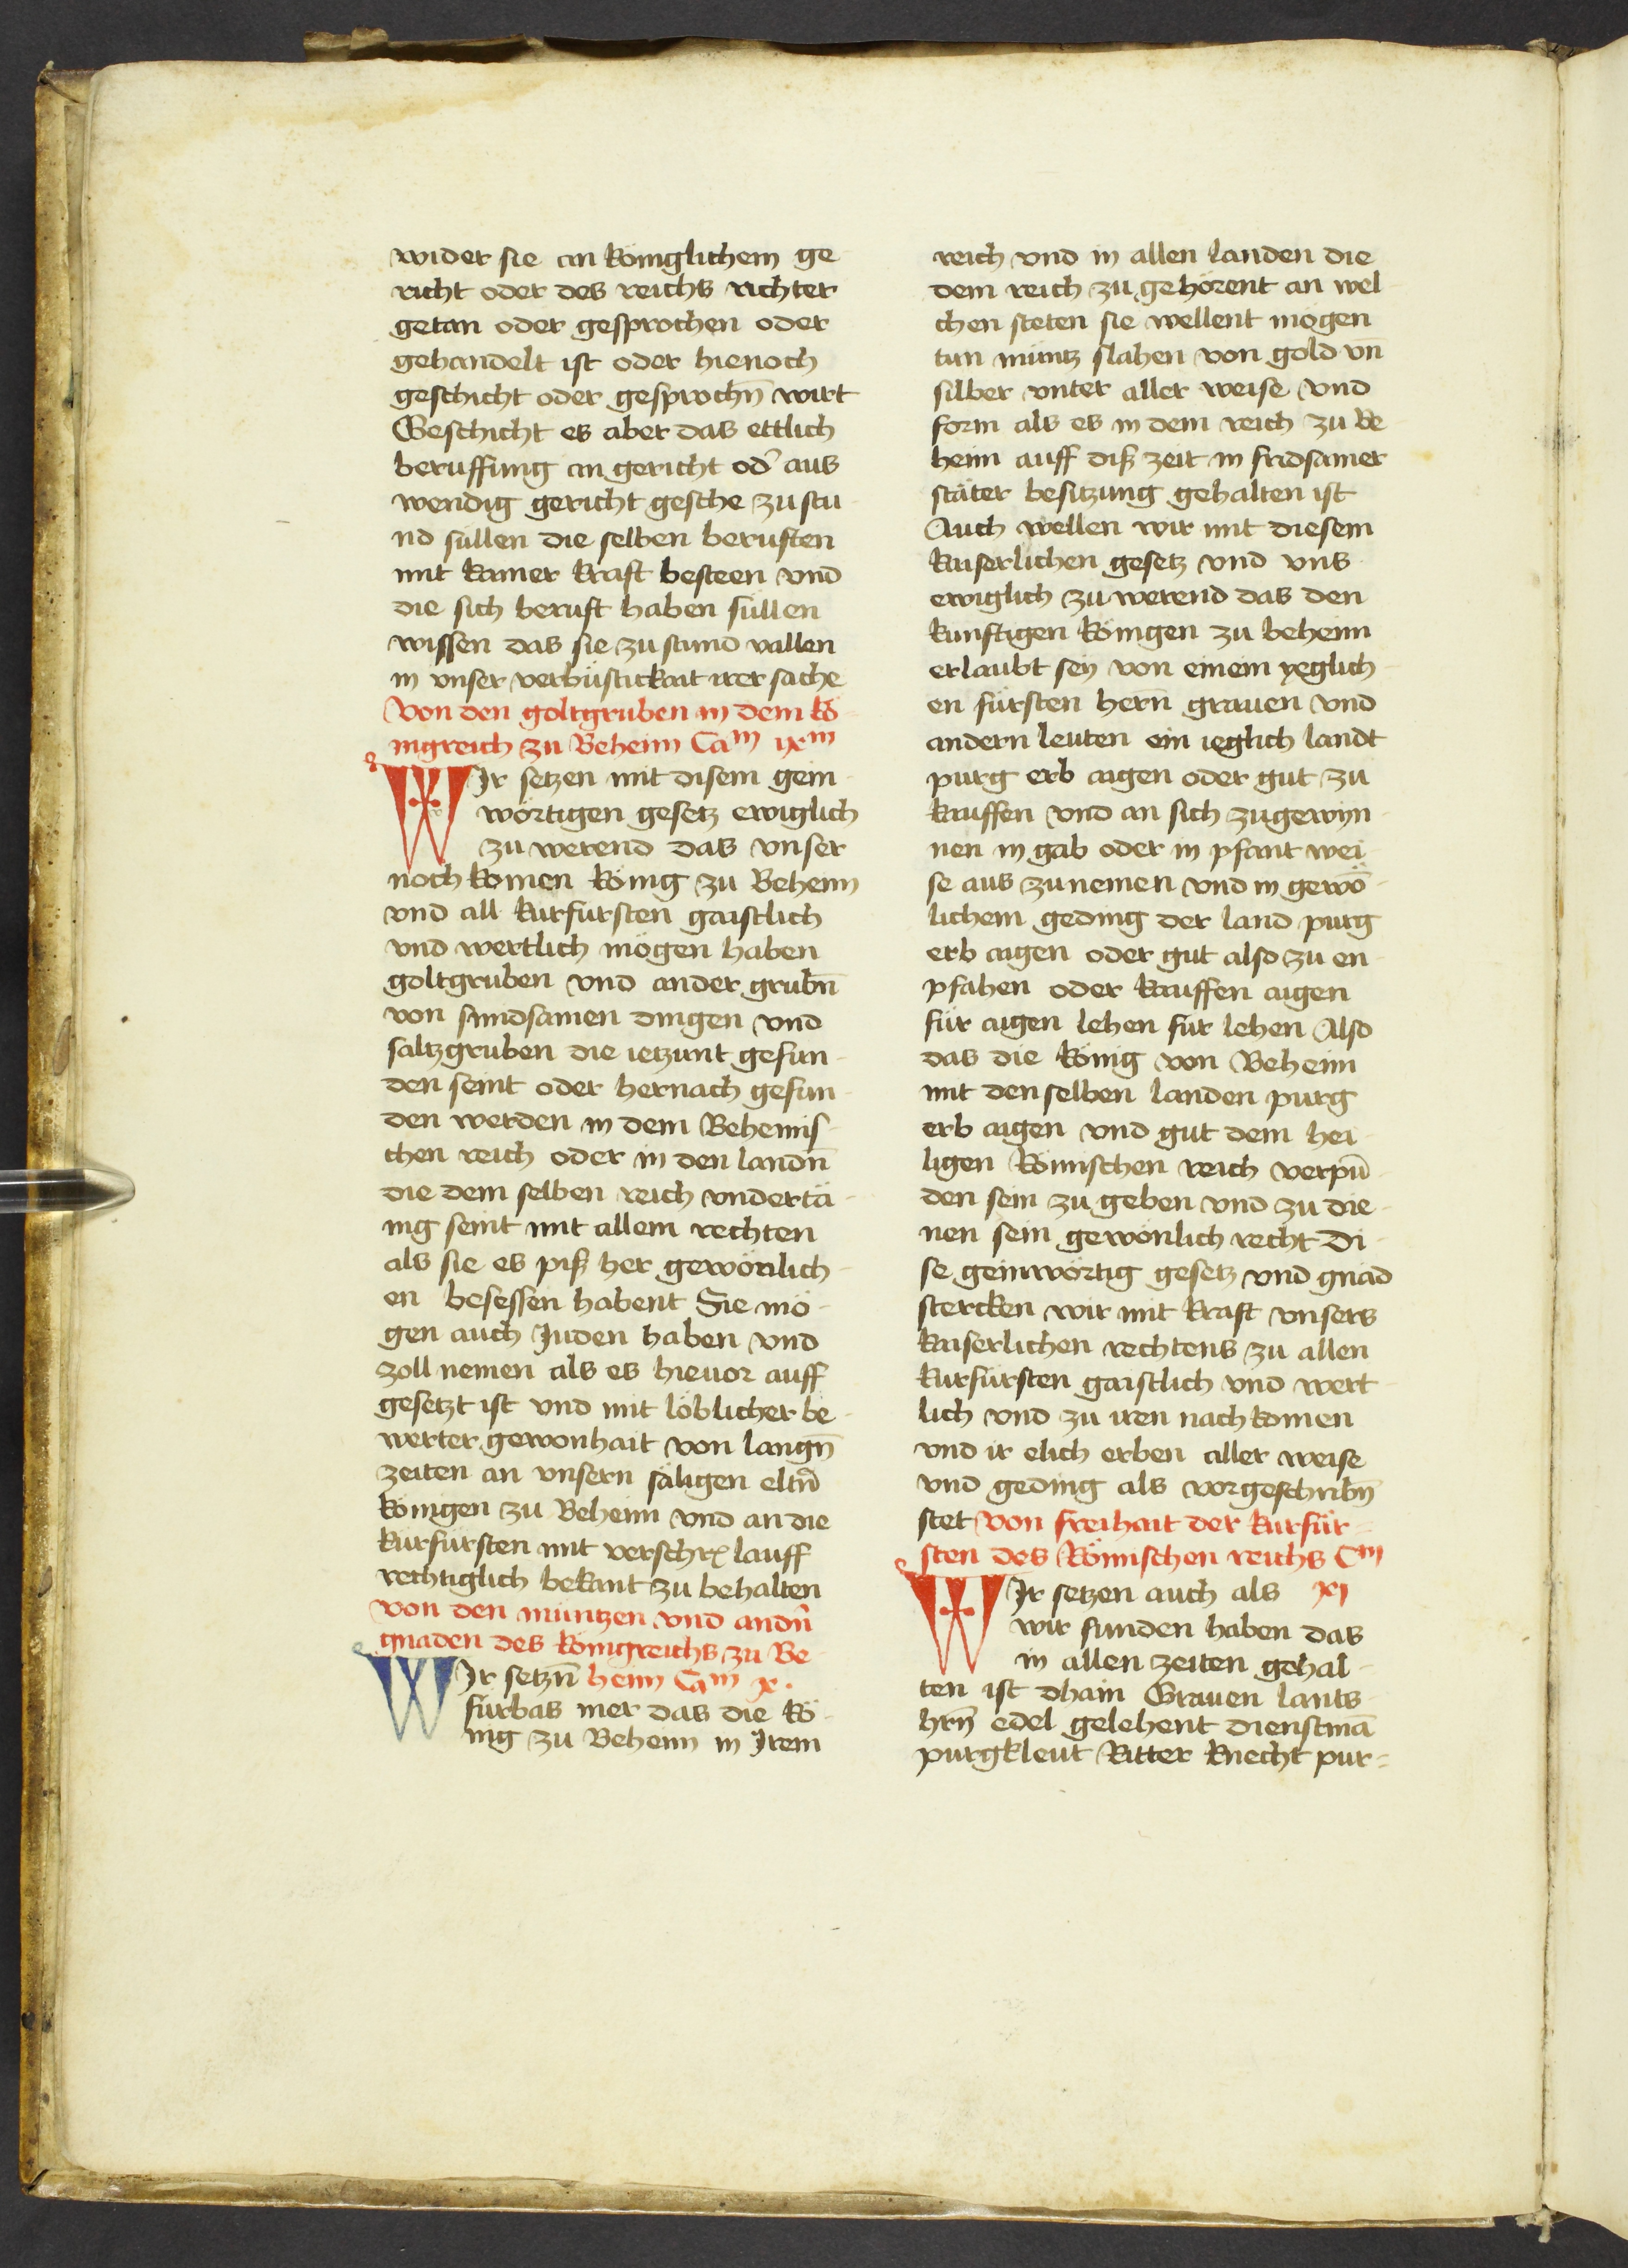 wider sie an königlichem ge
richt oder des reichs richter
getan oder gesprochen oder
gehandelt ist oder hienoch
geschicht oder gesprochn̄ wirt
Geschicht es aber das ettlich
beruffung an gericht od̾ aus
wendig gericht gesche zu stu
nd süllen die selben beruften
mit kainer kraft besteen vnd
die sich beruft haben süllen
wissen das sie zu stund vallen
in vnser verlüstickait irer sache
Von den goltgruben in dem kö
nigreich zu Beheim Caͫ ixͫ
WIr setzen mit disem gein
wörtigen gesetz ewiglich
zu werend das vnser
noch komen könig zu Beheim
vnd all kurfürsten gaistlich
vnd wertlich mögen haben
goltgruben vnd ander grubn̄
von sundsamen dingen vnd
saltzgruben die ietzunt gefun
den seint oder hernach gefun
den werden in dem Behemis
chen reich oder in den landn̄
die dem selben reich vndertä
nig seint mit allem rechten
als sie es piß her gewönlich
en besessen habent Sie mö
gen auch Juden haben vnd
zoll nemen als es hieuor auff
gesetzt ist vnd mit löblicher be
werter gewonhait von langn̄
zeiten an vnsern säligen eltn̄
königen zu Beheim vnd an die
kurfürsten mit lauff
rechtiglich bekant zu behalten
von den müntzen vnd andn̄
gnaden des königreichs zu Be
WIr setzn̄ heim Caͫ x.
fürbas mer das die kö
nig zu Beheim in Irem
reich vnd in allen landen die
dem reich zu gehörent an wel
chen steten sie wellent mögen
tun müntz slahen von gold vn̄
silber vnter aller weise vnd
form als es in dem reich zu Be
heim auff diß zeit in fridsamer
stäter besitzung gehalten ist
Auch wellen wir mit diesem
kaiserlichen gesetz vnd vns
ewiglich zu werend das den
kunftigen königen zu beheim
erlaubt sey von einem yeglich
en fürsten hern̄ grauen vnd
andern leuten ein ieglich landt
purg erb aigen oder gut zu
kauffen vnd an sich zugewyn
nen in gab oder in pfant wei
se aus zunemen vnd in gewȫ
lichem geding der land purg
erb aigen oder gut also zu en
pfahen oder kauffen aigen
für aigen lehen für lehen Also
das die könig von Beheim
mit den selben landen purg
erb aigen vnd gut dem hei
ligen Römischen reich verpū
den sein zu geben vnd zu die
nen sein gewönlich recht Di
se geinwörtig gesetz vnd gnad
stercken wir mit kraft vnsers
kaiserlichen rechtens zu allen
kurfürsten gaistlich vnd wert
lich vnd zu iren nach komen
vnd ir elich erben aller weise
vnd geding als vorgeschribn̄
stet Von freihait der kurfür=
sten des Römischen reichs Cͫ
WIr setzen auch als xi
wir funden haben das
in allen zeiten gehal
ten ist dhain Grauen lants
hrn̄ edel gelehent dienstmā
purgkleut Ritter knecht pur=